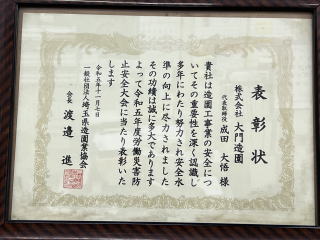 表彰状
株式会社 大門造園
代表取締役 成田 大悟 様
貴社は造園工事業の安全につ
いてその重要性を深く認識し
多年にわたり努力され安全水
準の向上に尽力されました
その功績は誠に多大であります
よって令和五年度労働災害防
止安全大会に当たり表彰いた
します
令和五年十一月七日
一般社団法人埼玉県造園業協会
会長 渡邉 進